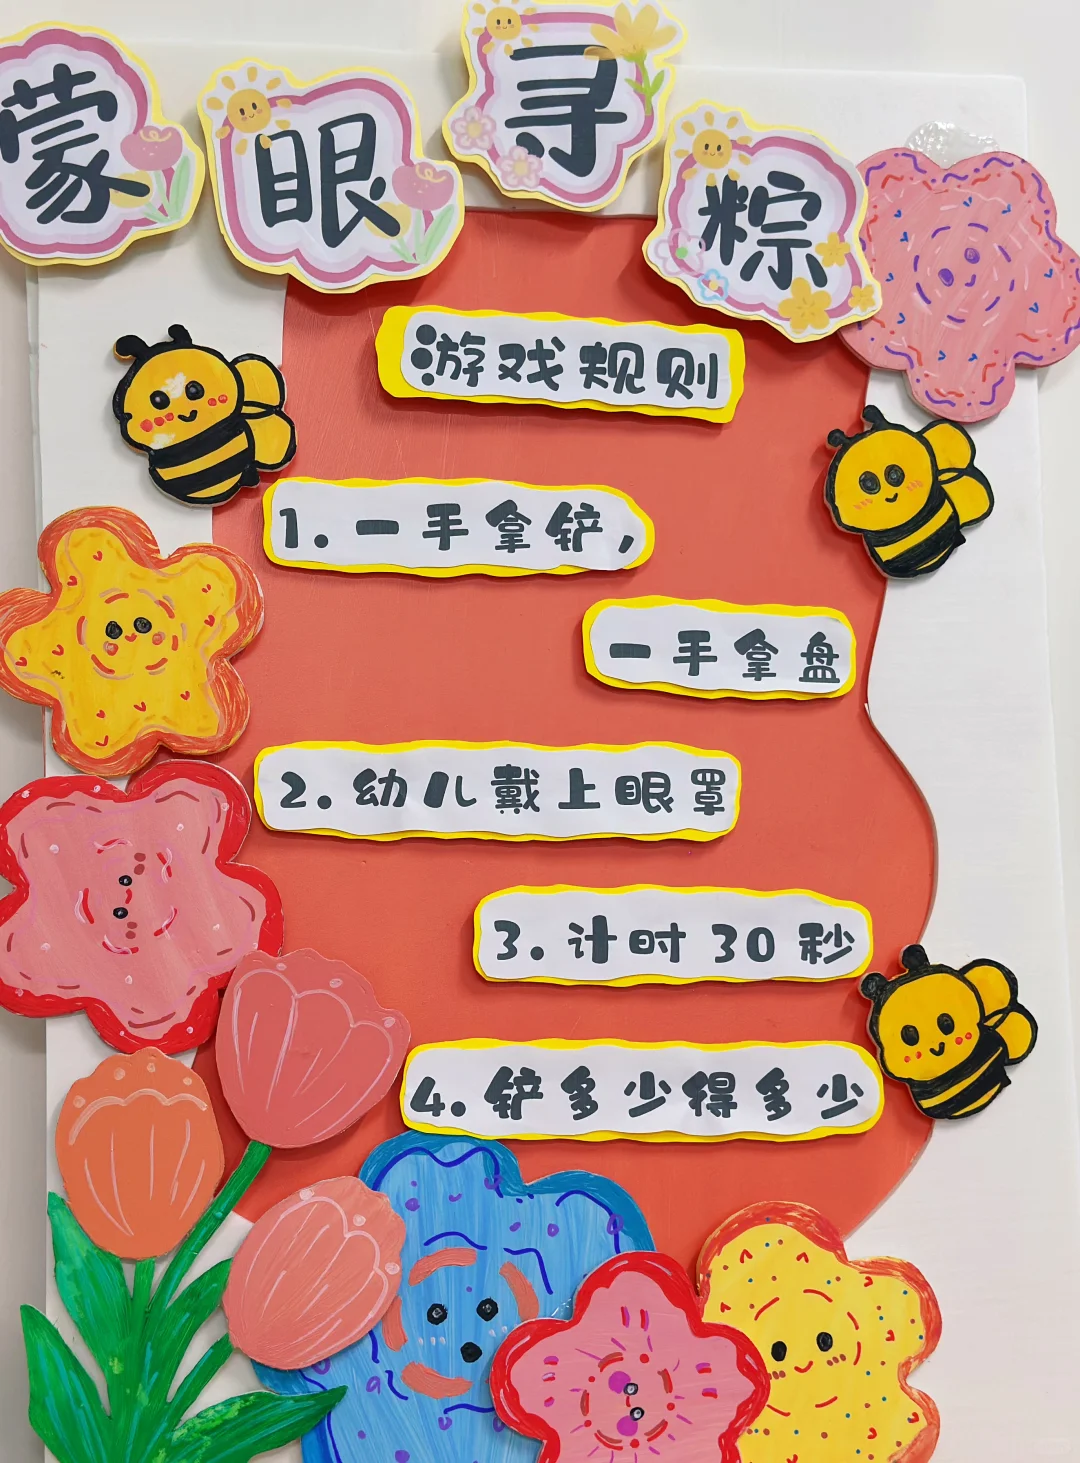 蒙眼寻粽
游戏规则
1.一手拿铲,
一手拿盘
2.幼儿戴上眼罩
3.计时30秒
4.铲多少得多少